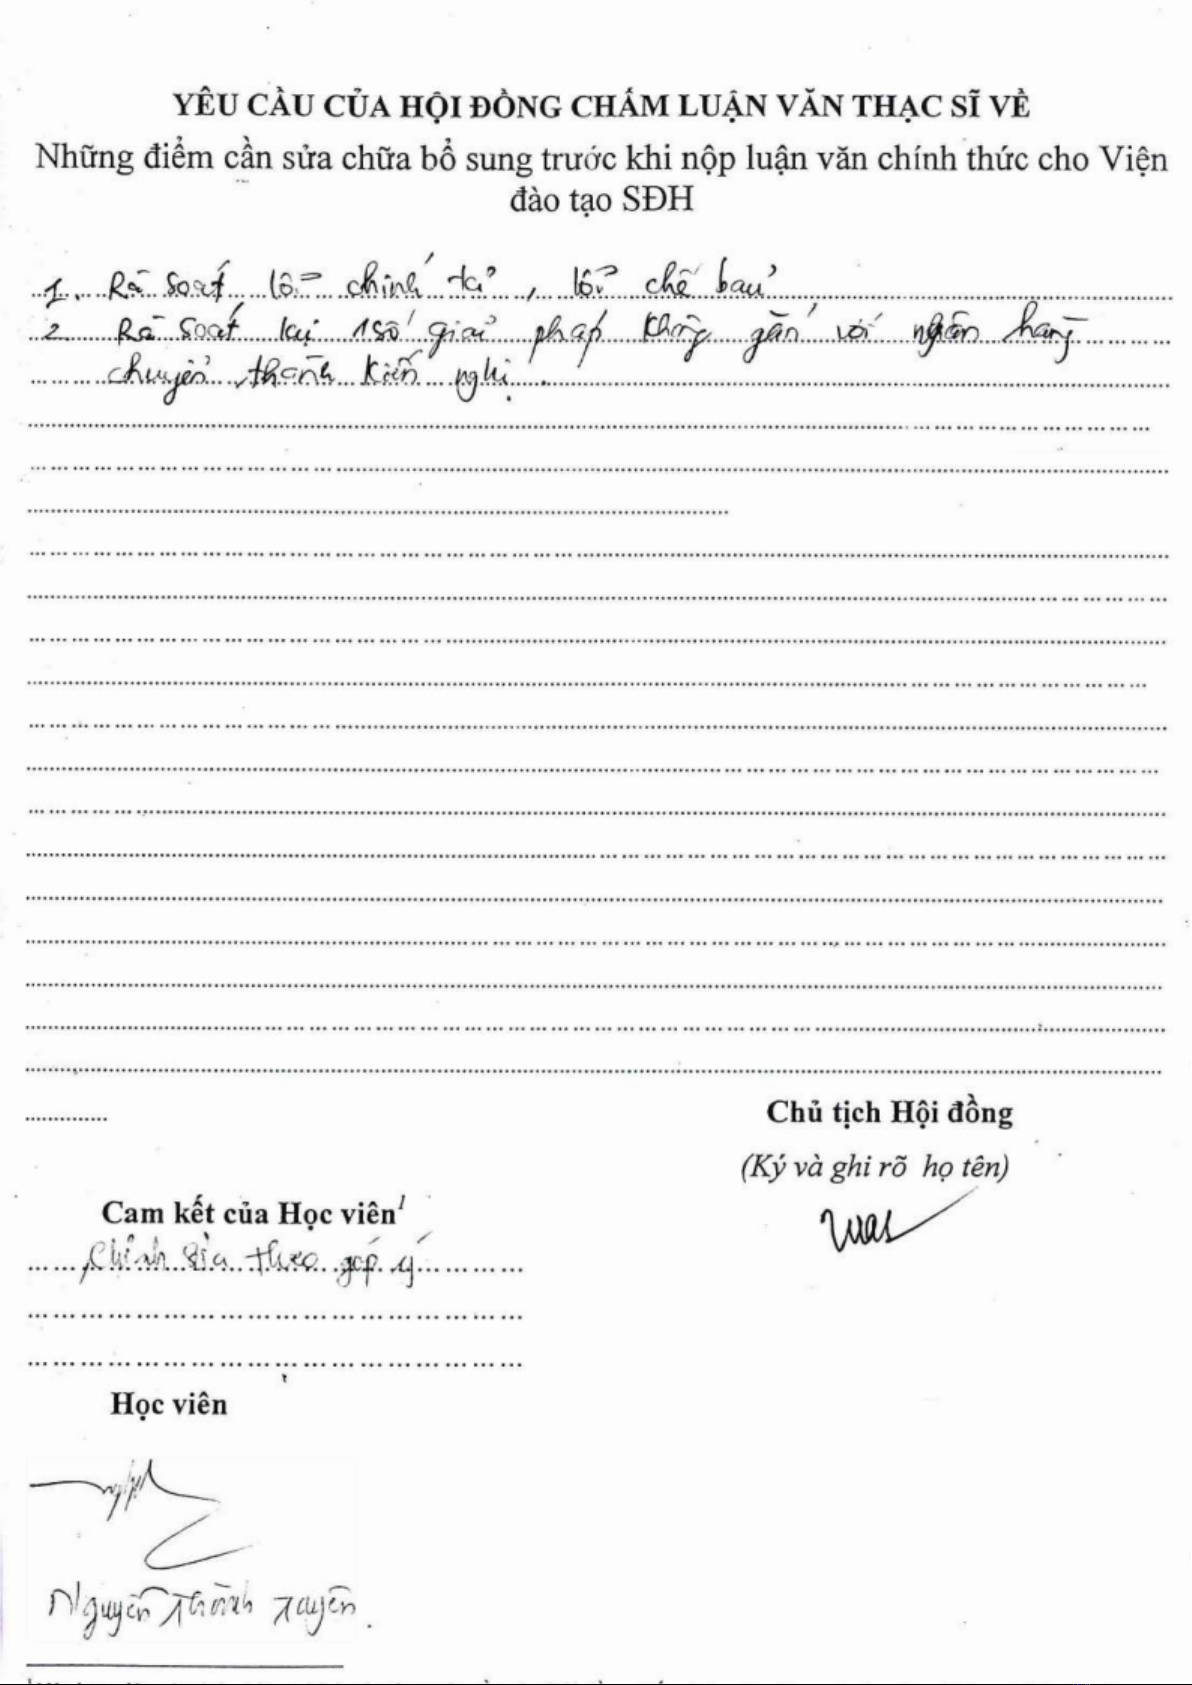 YÊU CẦU CỦA HỘI ĐỒNG CHẤM LUẬN VĂN THẠC SĨ VỀ
Những điểm cần sửa chữa bổ sung trước khi nộp luận văn chính thức cho Viện
đào tạo SĐH
1. Rà soát lỗi chính tả, lỗi chế bản
2. Rà soát lại 1 số giải pháp không gắn với ngân hàng
chuyển thành kiến nghị.
Chủ tịch Hội đồng
(Ký và ghi rõ họ tên)
Cam kết của Học viên¹
Chỉnh sửa theo góp ý
Học viên
Nguyễn Thành